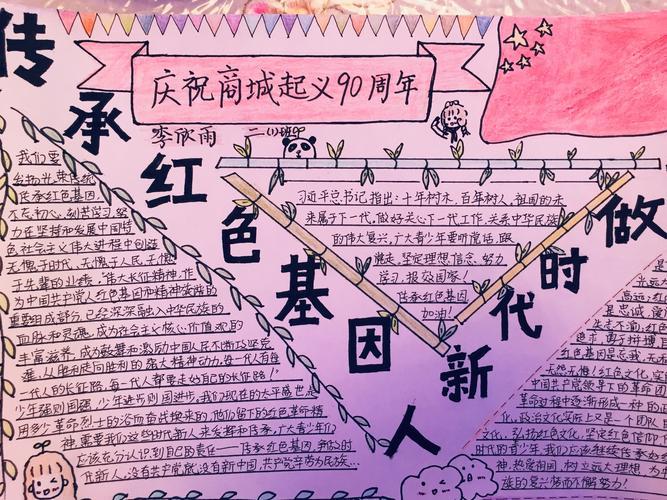 庆祝商城起义90周年
李欣雨 二(1)班
传承红色基因
做新时代人
我们要
发扬光荣传统
传承红色基因,
不忘初心,刻苦学习,努
力在坚持和发展中国特
色社会主义伟大进程中创造
无愧于时代,无愧于人民,无愧
于先辈的业绩,"伟大长征精神,作
为中国共产党人红色基因和精神族谱的
重要组成部分,已经深深融入中华民族的
血脉和灵魂,成为社会主义核心价值观的
丰富滋养,成为鼓舞和激励中国人民不断攻坚克
难,从胜利走向胜利的强大精神动力。每一代人有每
一代人的长征路,每一代人都要走好自己的长征路!"
少年强则国强,少年进步则国进步,我们现在的太平盛世是
用多少革命烈士的浴血奋战换来的,他们留下的红色革命精
神,需要我们这些时代新人来发扬和传承,广大青少年们
应该充分认识到自己的责任——传承红色基因,新时
代新人,没有共产党,就没有新中国,共产党辛劳为民族…
习近平总书记指出:十年树木,百年树人,祖国的未
来属于下一代。做好关心下一代工作,关系中华民族
的伟大复兴,广大青少年要听党话,跟
党走,坚定理想信念,努力
学习,报效国家!
传承红色基因
加油!
是
光远
高远;红
是忠诚,
矢志不渝,红
追求,勇于拼搏
红色基因是忘我,无
天然无惟!红色文化,实
中国共产党领导下的革命团
革命过程中逐渐形成一种的
化,政治文化实际上又是一个团队
文化,弘扬红色文化,坚定红色信仰
时代的青少年,我们应该继续传承
神,热爱祖国,树立远大理想,为
族的复兴梦而不解努力!